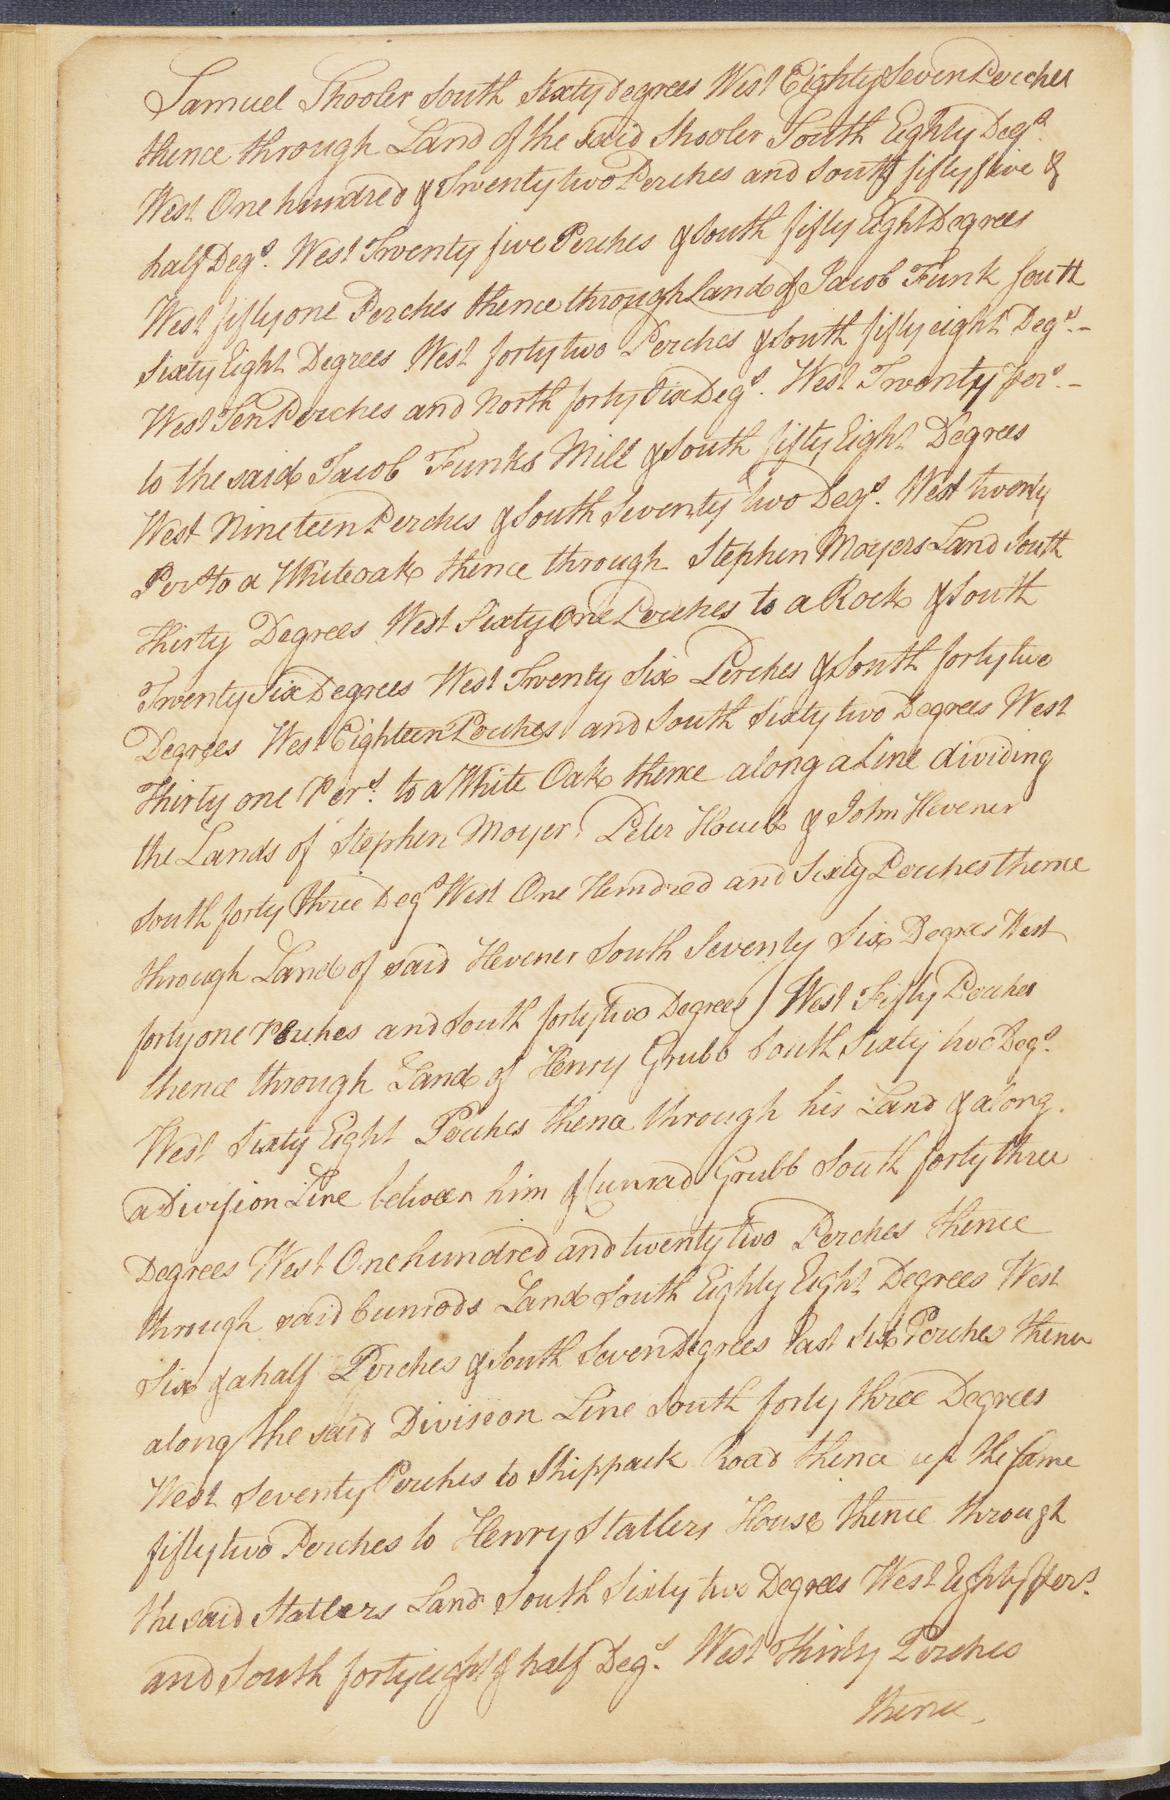 Samuel Shooler South Sixty Degrees West Eighty Seven Perches
thence through Land of the said Shooler South Eighty Degs.
West One hundred & Twenty two Perches and South fifty five &
half Degs. West Twenty five Perches & South fifty Eight Degrees
West fifty one Perches thence through Land of Jacob Funk South
Sixty Eight Degrees West forty two Perches & South fifty eight Degs.-
West Ten Perches and North forty Six Degs. West Twenty Pers.-
to the said Jacob Funks Mill & South fifty Eight Degrees
West Nineteen Perches & South Seventy two Degs. West twenty
Pers to a Whiteoak thence through Stephen Moyers Land South
Thirty Degrees West Sixty One Perches to a Rock & South
Twenty Six Degrees West Twenty Six Perches & South forty two
Degrees West Eighteen Perches and South Sixty two Degrees West
Thirty one Pers. to a White Oak thence along a Line dividing
the Lands of Stephen Moyer, Peter Houeb & John Hevener
South forty three Degs West One Hundred and Sixty Perches thence
through Land of said Hevener South Seventy Six Degrees West
forty one Perches and South forty two Degrees West Fifty Perches
thence through Land of Henry Grubb South Sixty two Degs.
West Sixty Eight Perches thence through his Land & along
a Division Line between him & Cunrad Grubb South forty three
Degrees West One hundred and twenty two Perches thence
through said Cunrods Land South Eighty Eight Degrees West
Six & a half Perches & South Seven Degrees East Six Perches thence
along the said Division Line South forty three Degrees
West Seventy Perches to Skippack Road thence up the same
fifty two Perches to Henry Statlers House thence through
the said Statlers Land South Sixty two Degrees West Eighty Pers.
and South forty eight & half Degs. West Thirty Perches
thence